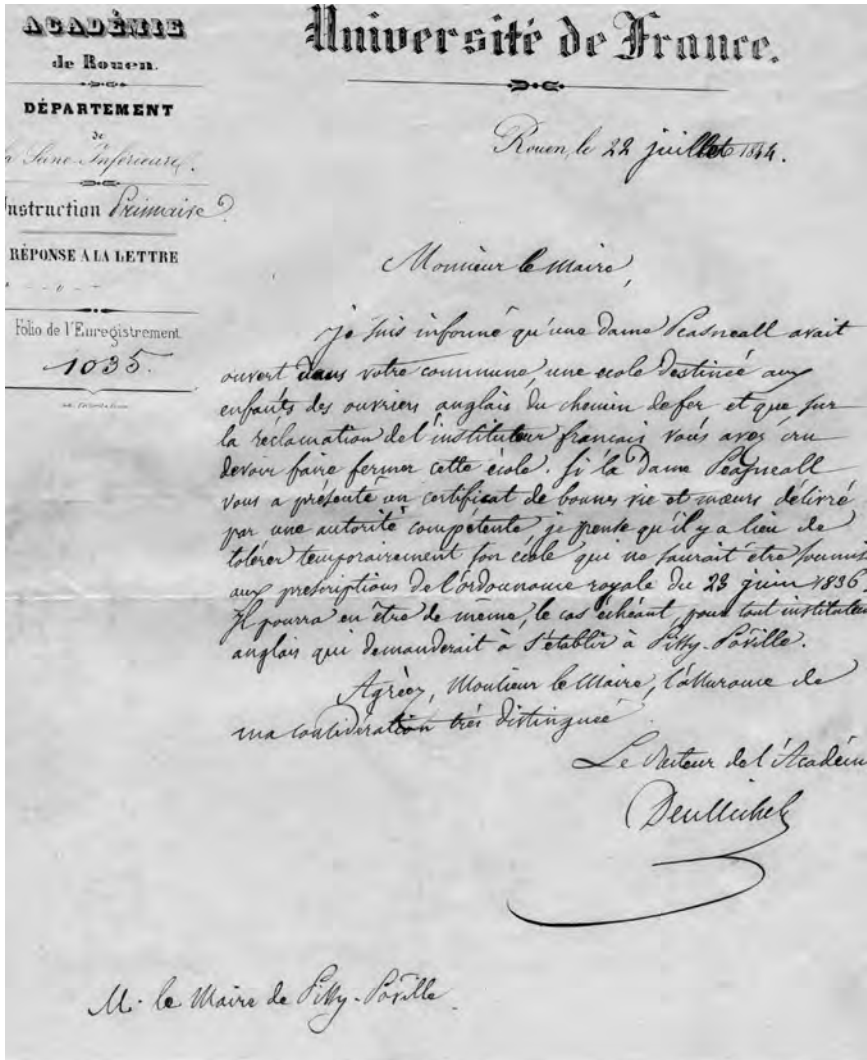 ACADÉMIE
de Rouen.
DÉPARTEMENT
de
la Seine-Inférieure.
Instruction Primaire
RÉPONSE A LA LETTRE
Folio de l'Enregistrement
1035.
Université de France.
Rouen, le 22 juillet 1844.
Monsieur le Maire,
je suis informé qu'une Dame Peasneall avait
ouvert dans votre commune, une école destinée aux
enfants des ouvriers anglais du chemin de fer et que sur
la réclamation de l'instituteur français vous avez cru
devoir faire fermer cette école. Si la Dame Peasneall
vous a présenté un certificat de bonnes vie et mœurs délivré
par une autorité compétente, je pense qu'il y a lieu de
tolérer temporairement son école qui ne saurait être soumis
aux prescriptions de l'ordonnance royale du 23 juin 1836.
Il pourra en être de même, le cas échéant, pour tout instituteur
anglais qui demanderait à s'établir à Pissy-Pôville.
Agréez, Monsieur le Maire, l'assurance de
ma considération très distinguée.
Le Recteur de l'Académ
M. le Maire de Pissy-Pôville.